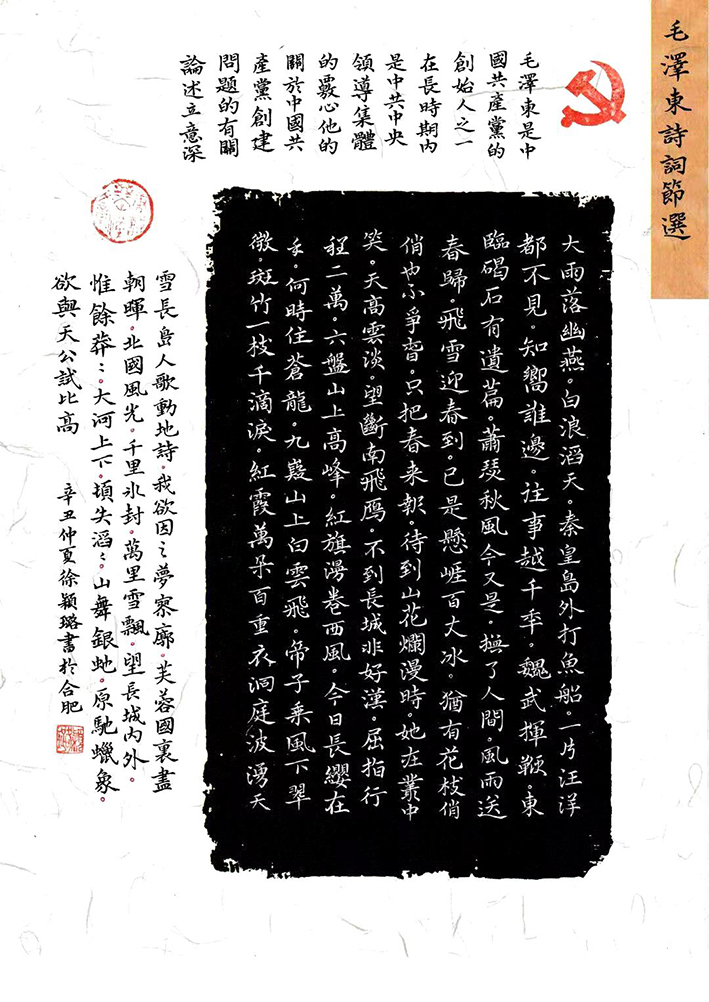 毛澤東詩詞節選
毛澤東是中
國共產黨的
創始人之一
在長時期內
是中共中央
領導集體
的覈心他的
關於中國共
產黨創建
問題的有關
論述立意深
大雨落幽燕。白浪滔天。秦皇島外打魚船。一片汪洋
都不見。知嚮誰邊。往事越千年。魏武揮鞭。東
臨碣石有遺篇。蕭瑟秋風今又是。換了人間。風雨送
春歸。飛雪迎春到。已是懸崖百丈冰。猶有花枝俏
俏也不爭春。只把春来報。待到山花爛漫時。她在叢中
笑。天高雲淡。望斷南飛雁。不到長城非好漢。屈指行
程二萬。六盤山上高峰。紅旗漫卷西風。今日長纓在
手。何時縛住蒼龍。九嶷山上白雲飛。帝子乘風下翠
微。斑竹一枝千滴淚。紅霞萬朵百重衣。洞庭波湧天
雪長島人歌動地詩。我欲因之夢寥廓。芙蓉國裏盡
朝暉。北國風光。千里冰封。萬里雪飄。望長城內外。
惟餘莽〻。大河上下。頃失滔〻。山舞銀蛇。原馳蠟象。
欲與天公試比高
辛丑仲夏徐穎璐書於合肥